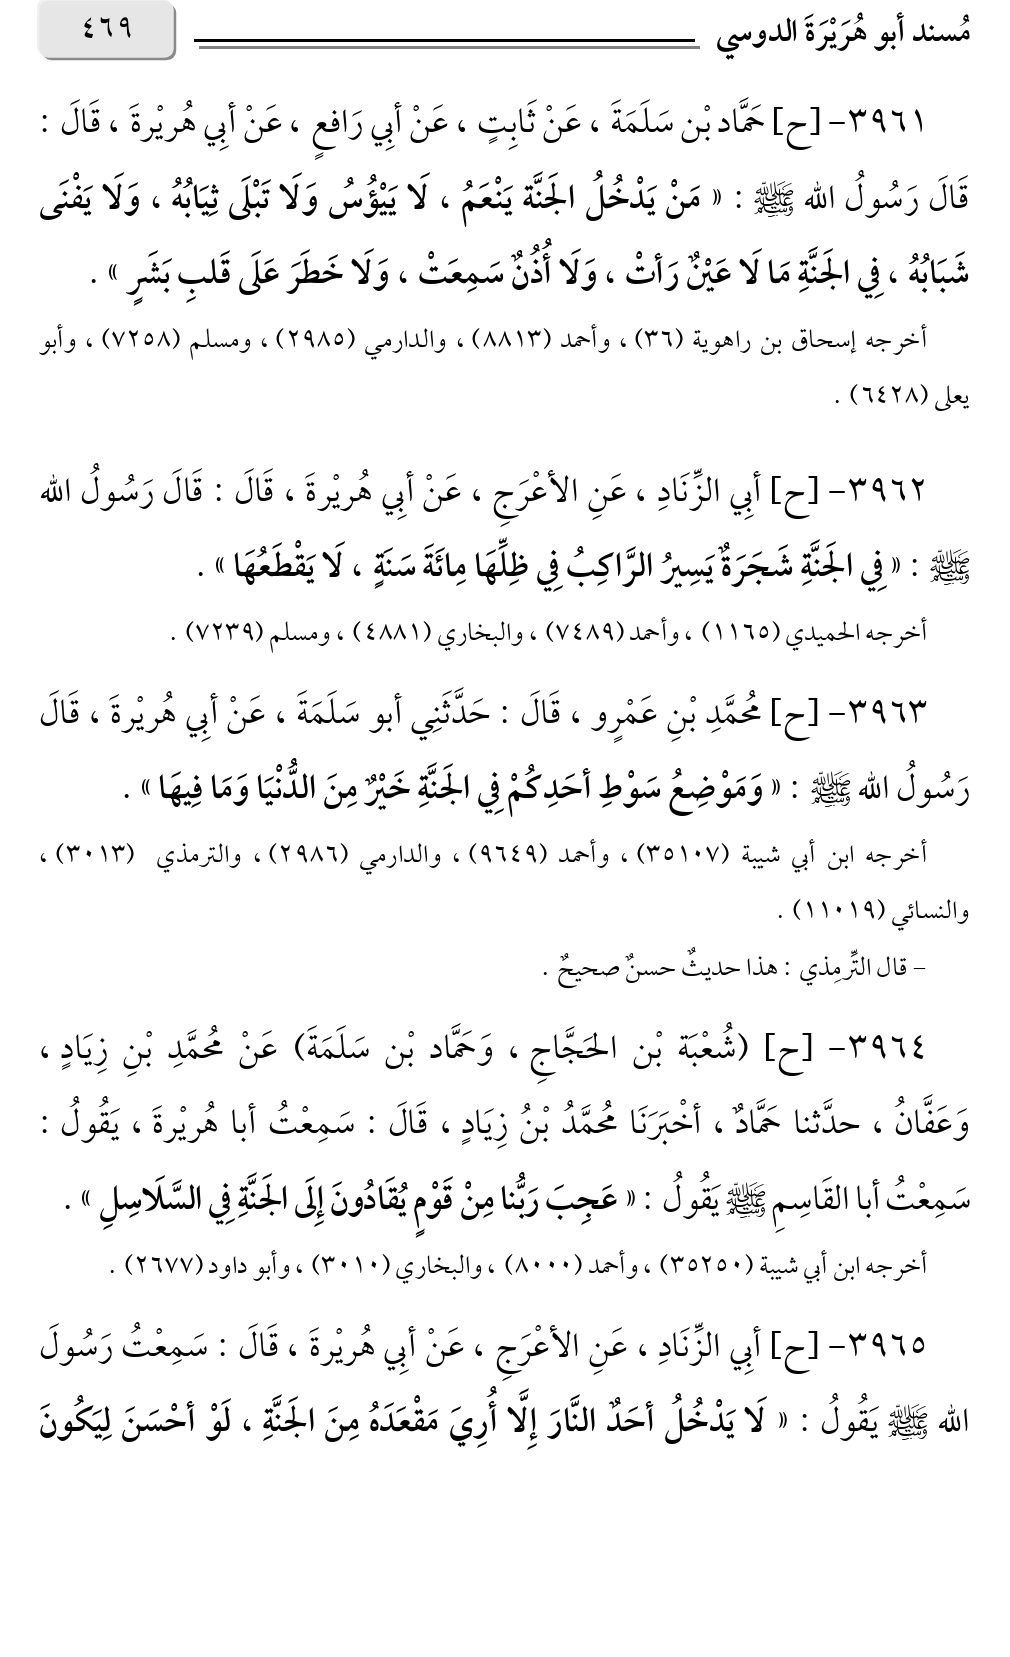 مُسند أبو هُرَيْرَةَ الدوسي ٤٦٩
٣٩٦١- [ح] حَمَّاد بْن سَلَمَةَ ، عَنْ ثَابِتٍ ، عَنْ أبِي رَافعٍ ، عَنْ أبِي هُريْرةَ ، قَالَ :
قَالَ رَسُولُ الله ﷺ : « مَنْ يَدْخُلُ الجَنَّة يَنْعَمُ ، لَا يَيْؤُسُ وَلَا تَبْلَى ثِيَابُهُ ، وَلَا يَفْنَى
شَبَابُهُ ، فِي الجَنَّةِ مَا لَا عَيْنٌ رَأتْ ، وَلَا أُذُنٌ سَمِعَتْ ، وَلَا خَطَرَ عَلَى قَلبِ بَشَرٍ » .
أخرجه إسحاق بن راهوية (٣٦) ، وأحمد (٨٨١٣) ، والدارمي (٢٩٨٥) ، ومسلم (٧٢٥٨) ، وأبو
يعلى (٦٤٢٨) .
٣٩٦٢- [ح] أبِي الزِّنَادِ ، عَنِ الأعْرَجِ ، عَنْ أبِي هُريْرةَ ، قَالَ : قَالَ رَسُولُ الله
ﷺ : « فِي الجَنَّةِ شَجَرَةٌ يَسِيرُ الرَّاكِبُ فِي ظِلِّهَا مِائَةَ سَنَةٍ ، لَا يَقْطَعُهَا » .
أخرجه الحميدي (١١٦٥) ، وأحمد (٧٤٨٩) ، والبخاري (٤٨٨١) ، ومسلم (٧٢٣٩) .
٣٩٦٣- [ح] مُحَمَّدِ بْنِ عَمْرٍو ، قَالَ : حَدَّثَنِي أبو سَلَمَةَ ، عَنْ أبِي هُريْرةَ ، قَالَ
رَسُولُ الله ﷺ : « وَمَوْضِعُ سَوْطِ أحَدِكُمْ فِي الجَنَّةِ خَيْرٌ مِنَ الدُّنْيَا وَمَا فِيهَا » .
أخرجه ابن أبي شيبة (٣٥١٠٧) ، وأحمد (٩٦٤٩) ، والدارمي (٢٩٨٦) ، والترمذي (٣٠١٣) ،
والنسائي (١١٠١٩) .
– قال التِّرمِذي : هذا حديثٌ حسنٌ صحيحٌ .
٣٩٦٤- [ح] (شُعْبَة بْن الحَجَّاجِ ، وَحَمَّاد بْن سَلَمَةَ) عَنْ مُحَمَّدِ بْنِ زِيَادٍ ،
وَعَفَّانُ ، حدَّثنا حَمَّادٌ ، أخْبَرَنَا مُحَمَّدُ بْنُ زِيَادٍ ، قَالَ : سَمِعْتُ أبا هُريْرةَ ، يَقُولُ :
سَمِعْتُ أبا القَاسِمِ ﷺ يَقُولُ : « عَجِبَ رَبُّنا مِنْ قَوْمٍ يُقَادُونَ إِلَى الجَنَّةِ فِي السَّلَاسِلِ » .
أخرجه ابن أبي شيبة (٣٥٢٥٠) ، وأحمد (٨٠٠٠) ، والبخاري (٣٠١٠) ، وأبو داود (٢٦٧٧) .
٣٩٦٥- [ح] أبِي الزِّنَادِ ، عَنِ الأعْرَجِ ، عَنْ أبِي هُريْرةَ ، قَالَ : سَمِعْتُ رَسُولَ
الله ﷺ يَقُولُ : « لَا يَدْخُلُ أحَدٌ النَّارَ إِلَّا أُرِيَ مَقْعَدَهُ مِنَ الجَنَّةِ ، لَوْ أحْسَنَ لِيَكُونَ